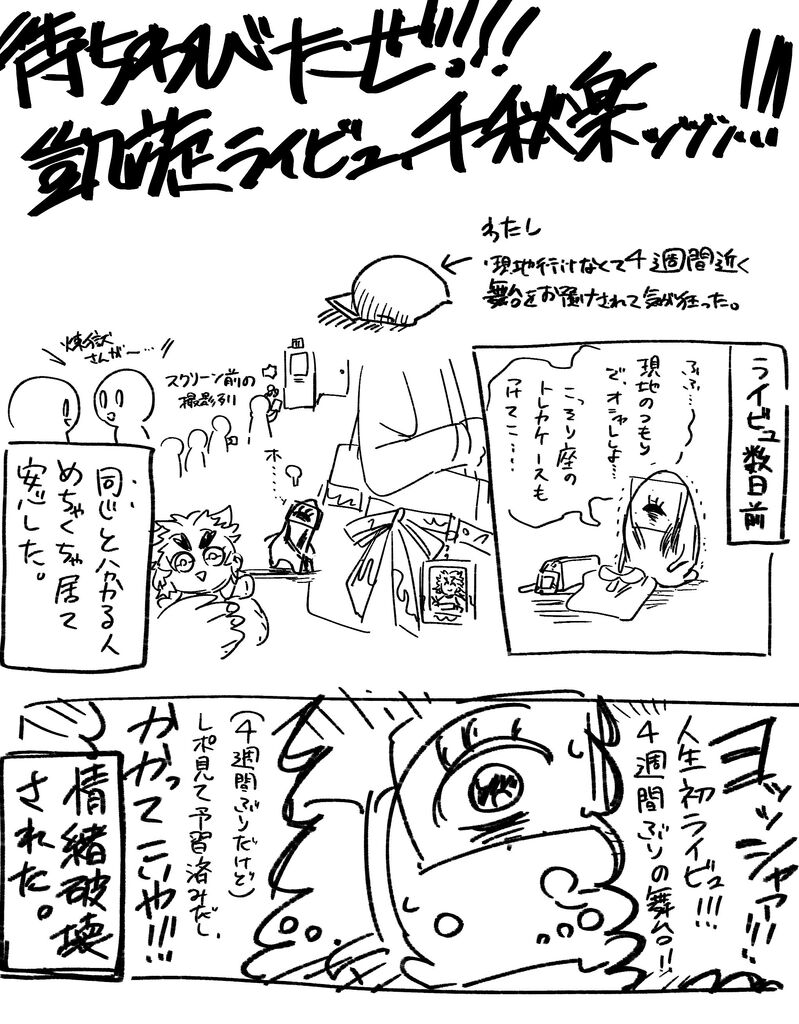 待ちわびたぜ!!!
凱旋ライビュ、千秋楽ッッッ!!!
わたし
・現地行けなくて4週間近く
舞台をお預けされて気が狂った。
ライビュ数日前
ふふ…
現地のつもり
で、オシャレしよ…
こっそり座の
トレカケースも
つけてこ…
煉獄
さんが〜…
スクリーン前の
撮影列
ホ…
同じと分かる人
めちゃくちゃ居て
安心した。
ヨッッシャァー!!!
人生初ライビュ!!!
4週間ぶりの舞台!!
(4週間ぶりだけど)
レポ見て予習済みだし、
かかってこいや!!!
情緒破壊
された。